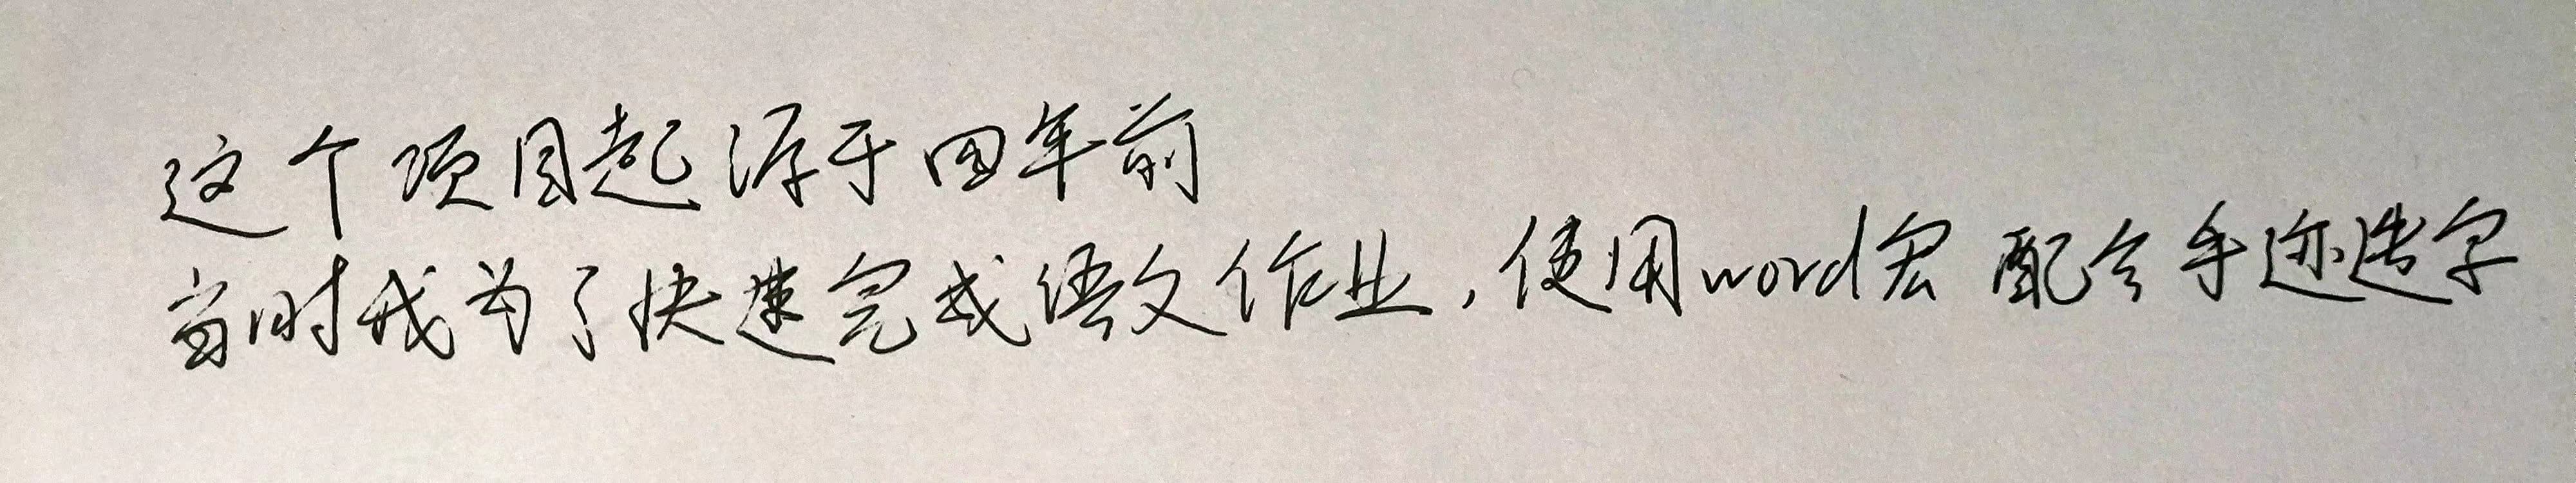 这个项目起源于四年前
当时我为了快速完成语文作业,使用word宏 配合手迹造字